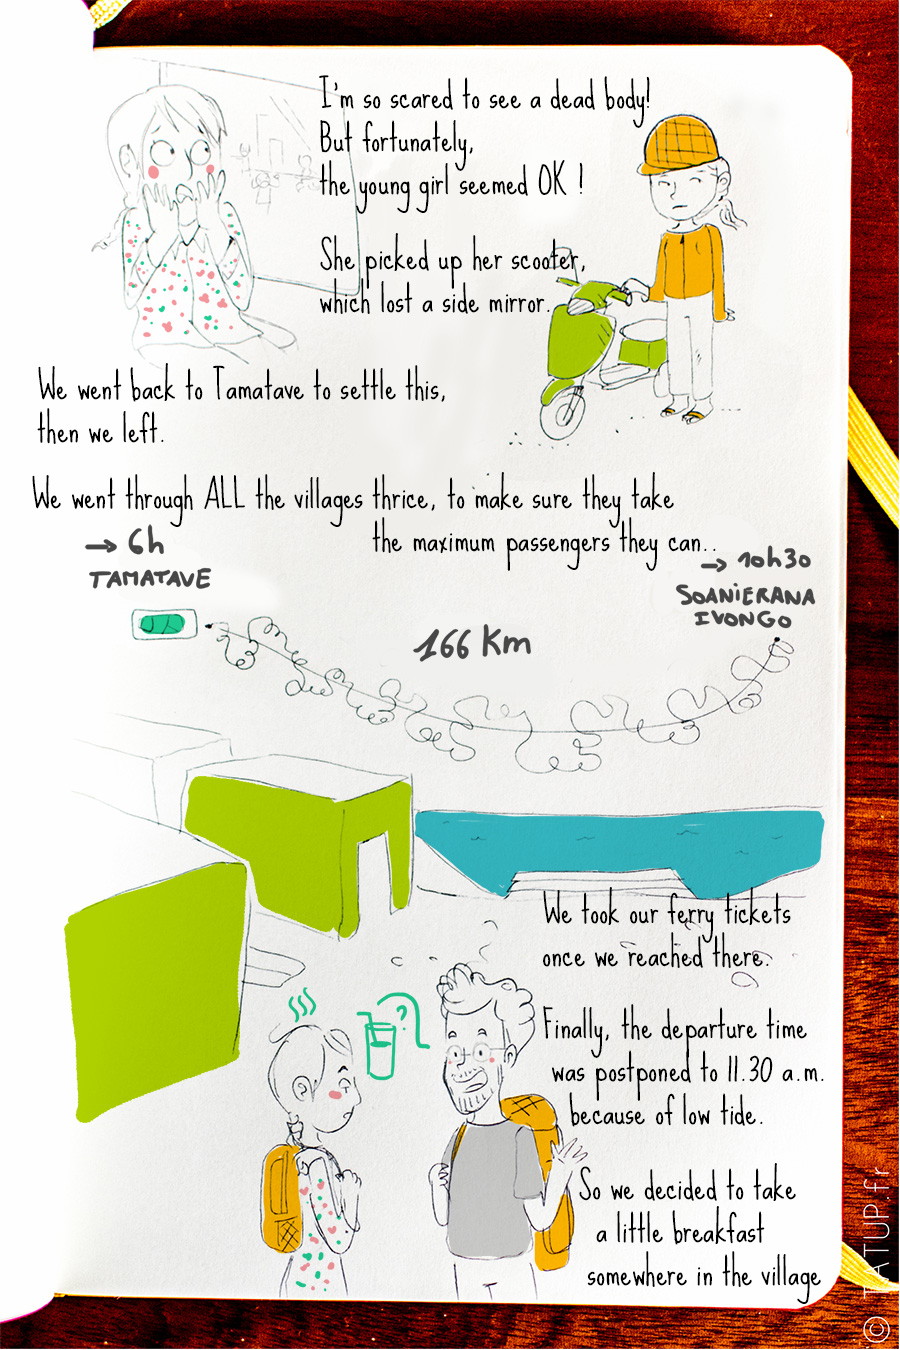 I'm so scared to see a dead body!
But fortunately,
the young girl seemed OK !
She picked up her scooter,
which lost a side mirror.
We went back to Tamatave to settle this,
then we left.
We went through ALL the villages thrice, to make sure they take
the maximum passengers they can..
→ 6h
TAMATAVE
→ 10h30
SOANIERANA
IVONGO
166 Km
We took our ferry tickets
once we reached there.
Finally, the departure time
was postponed to 11.30 a.m.
because of low tide.
?
So we decided to take
a little breakfast
somewhere in the village
© TATUP.fr